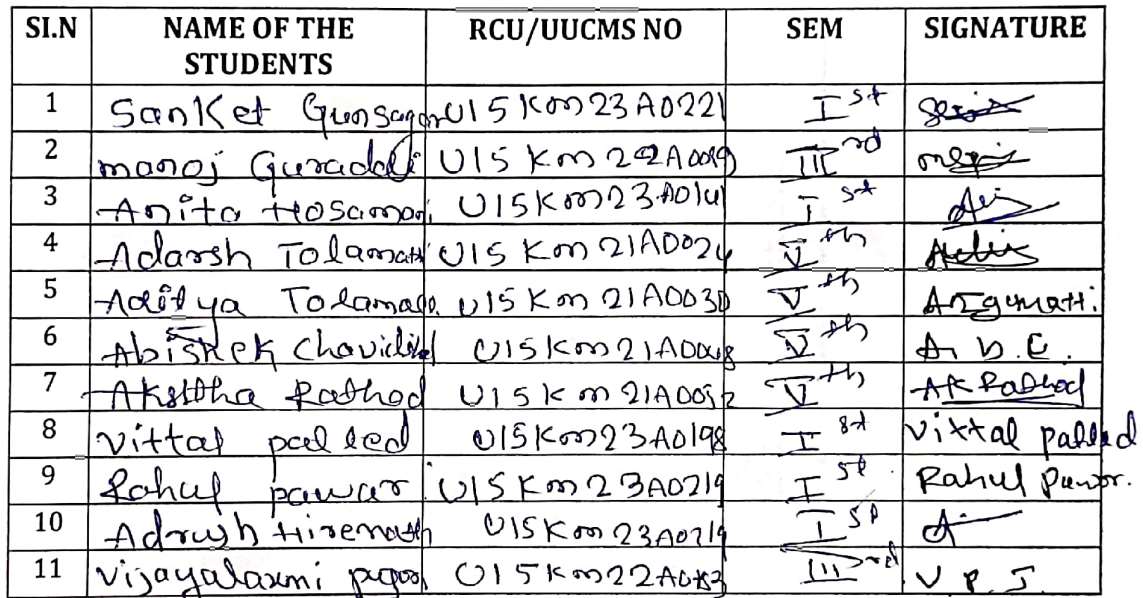 SI.N NAME OF THE STUDENTS RCU/UUCMS NO SEM SIGNATURE
1 Sanket Gunsagar U15KM23A0221 I st
2 manoj Guraddi U15KM22A0019 III rd
3 Anita Hosamani U15KM23A0141 I st
4 Adarsh Tolamatti U15KM21A0024 V th
5 Aditya Tolamatti U15KM21A0030 V th
6 Abishek Chavidi U15KM21A0048 V th A. b. C.
7 Akshtha Rathod U15KM21A0052 V th AK Rathod
8 vittal palled U15KM23A0198 I st vittal palled
9 Rahul pawar U15KM23A0219 I st Rahul Pawar.
10 Adrush Hiremath U15KM23A0219 I st
11 vijayalaxmi U15KM22A0183 III rd V. P. J.